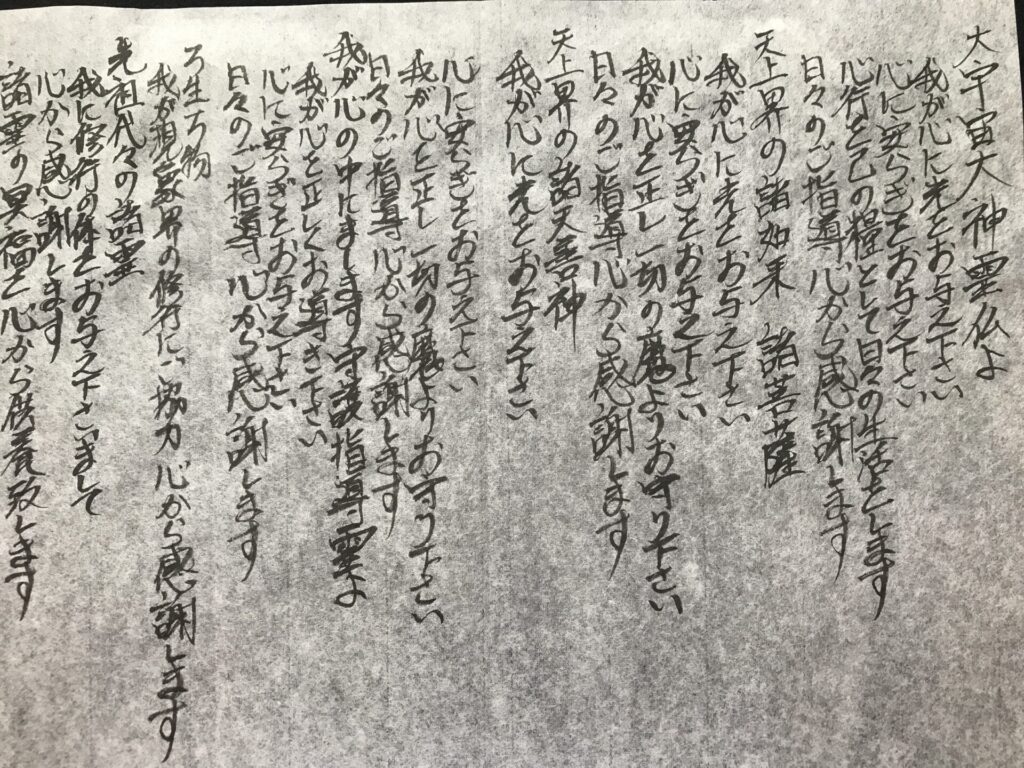 大宇宙大神霊仏よ
我が心に光をお与え下さい
心に安らぎをお与え下さい
心行を己の糧として日々の生活をします
日々のご指導心から感謝します
天上界の諸如来 諸菩薩
我が心に光をお与え下さい
心に安らぎをお与え下さい
我が心を正し一切の魔よりお守り下さい
日々のご指導心から感謝します
天上界の諸天善神
我が心に光をお与え下さい
心に安らぎをお与え下さい
我が心を正し一切の魔よりお守り下さい
日々のご指導心から感謝します
我が心の中にまします守護指導霊よ
我が心を正しくお導き下さい
心に安らぎをお与え下さい
日々のご指導心から感謝します
万生万物
我が現象界の修行にご協力心から感謝します
先祖代々の諸霊
我に修行の体をお与え下さいまして
心から感謝します
諸霊の冥福を心から供養致します